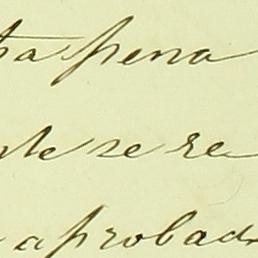 ta pena
te se re
aprobad